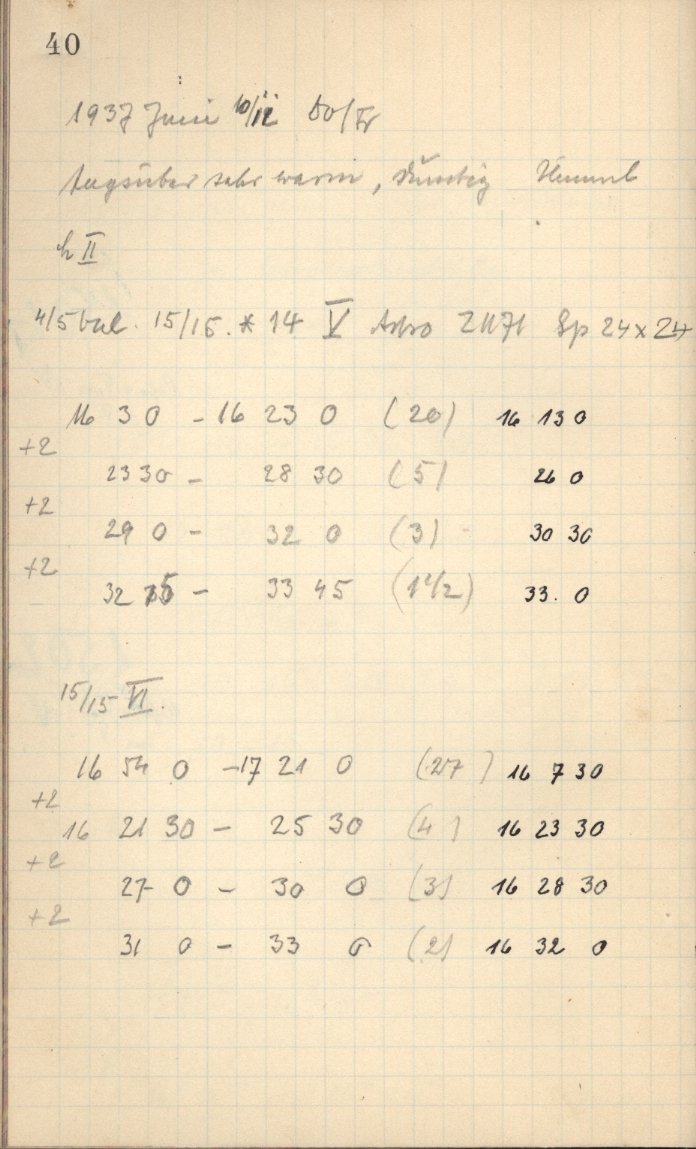 40
1937 Juni 10/11 Do/Fr
tagsüber sehr warm, dunstig
h II
4/5 bal. 15/15. * 14 V Astro Sp 24 x 24
16 3 0 - 16 23 0 (20) 16 13 0
+2
23 30 - 28 30 (5) 26 0
+2
29 0 - 32 0 (3) 30 30
+2
32 15 - 33 45 (1 1/2) 33. 0
15/15 VI.
16 54 0 - 17 21 0 (27) 16 7 30
+2
16 21 30 - 25 30 (4) 16 23 30
+2
27 0 - 30 0 (3) 16 28 30
+2
31 0 - 33 0 (2) 16 32 0